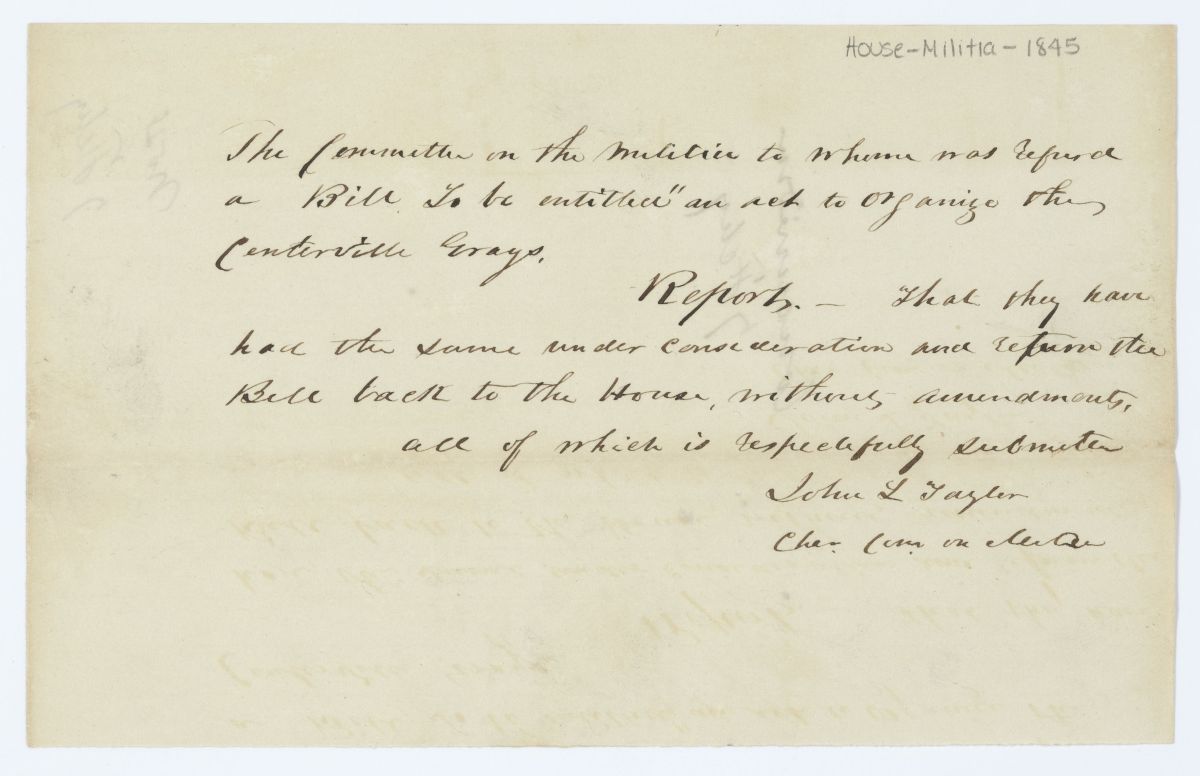 House-Militia-1845
The Committee on the Militia to whome was refured
a Bill To be entitled "an act to organize the
Centerville Grays.
Report. — That they have
had the same under consideration and return the
Bill back to the House, without amendments.
all of which is respectifully submitted
John L Taylor
Com on